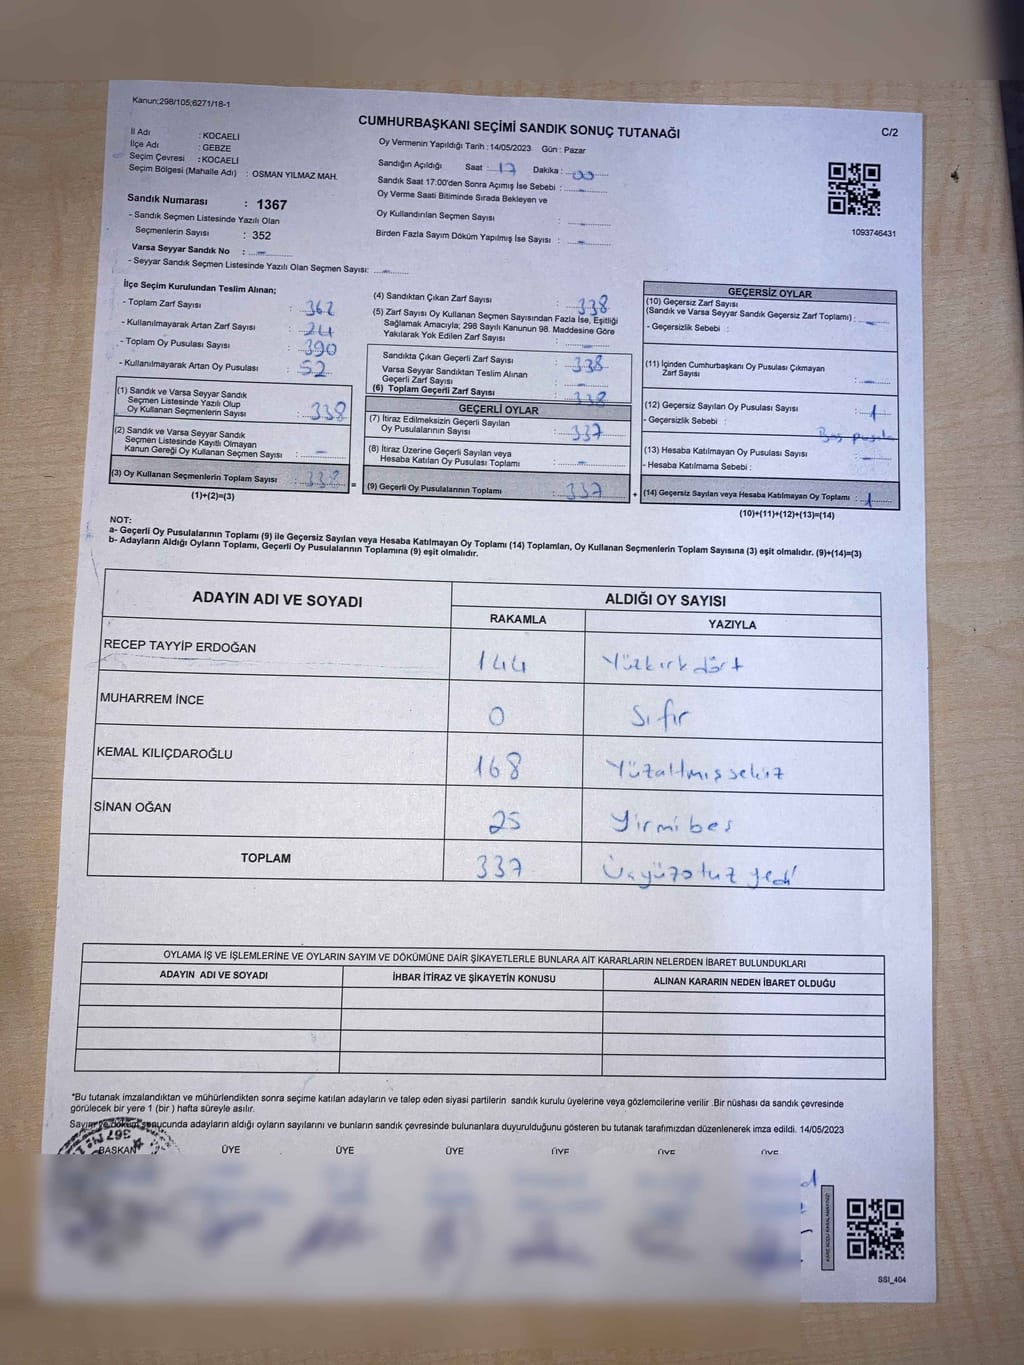 Kanun:298/105;6271/18-1
CUMHURBAŞKANI SEÇİMİ SANDIK SONUÇ TUTANAĞI
C/2
İl Adı : KOCAELİ
İlçe Adı : GEBZE
Seçim Çevresi : KOCAELİ
Seçim Bölgesi (Mahalle Adı) : OSMAN YILMAZ MAH.
Oy Vermenin Yapıldığı Tarih :14/05/2023 Gün : Pazar
Sandığın Açıldığı Saat : 17 Dakika : 00
Sandık Saat 17:00'den Sonra Açımış İse Sebebi : -
Oy Verme Saati Bitiminde Sırada Bekleyen ve
Oy Kullandırılan Seçmen Sayısı : -
Birden Fazla Sayım Döküm Yapılmış İse Sayısı : -
1093746431
Sandık Numarası : 1367
- Sandık Seçmen Listesinde Yazılı Olan
Seçmenlerin Sayısı : 352
Varsa Seyyar Sandık No : -
- Seyyar Sandık Seçmen Listesinde Yazılı Olan Seçmen Sayısı: -
İlçe Seçim Kurulundan Teslim Alınan;
- Toplam Zarf Sayısı : 362
- Kullanılmayarak Artan Zarf Sayısı : 24
- Toplam Oy Pusulası Sayısı : 390
- Kullanılmayarak Artan Oy Pusulası : 52
(1) Sandık ve Varsa Seyyar Sandık
Seçmen Listesinde Yazılı Olup
Oy Kullanan Seçmenlerin Sayısı : 338
(2) Sandık ve Varsa Seyyar Sandık
Seçmen Listesinde Kayıtlı Olmayan
Kanun Gereği Oy Kullanan Seçmen Sayısı : -
(3) Oy Kullanan Seçmenlerin Toplam Sayısı : 338
(1)+(2)=(3)
(4) Sandıktan Çıkan Zarf Sayısı : 338
(5) Zarf Sayısı Oy Kullanan Seçmen Sayısından Fazla İse, Eşitliği
Sağlamak Amacıyla; 298 Sayılı Kanunun 98. Maddesine Göre
Yakılarak Yok Edilen Zarf Sayısı : -
Sandıkta Çıkan Geçerli Zarf Sayısı : 338
Varsa Seyyar Sandıktan Teslim Alınan
Geçerli Zarf Sayısı : -
(6) Toplam Geçerli Zarf Sayısı : 338
GEÇERLİ OYLAR
(7) İtiraz Edilmeksizin Geçerli Sayılan
Oy Pusulalarının Sayısı : 337
(8) İtiraz Üzerine Geçerli Sayılan veya
Hesaba Katılan Oy Pusulası Toplamı : -
= (9) Geçerli Oy Pusulalarının Toplamı : 337
GEÇERSİZ OYLAR
(10) Geçersiz Zarf Sayısı
(Sandık ve Varsa Seyyar Sandık Geçersiz Zarf Toplamı) : -
- Geçersizlik Sebebi :
(11) İçinden Cumhurbaşkanı Oy Pusulası Çıkmayan
Zarf Sayısı : -
(12) Geçersiz Sayılan Oy Pusulası Sayısı : 1
- Geçersizlik Sebebi : Boş pusula
(13) Hesaba Katılmayan Oy Pusulası Sayısı : -
- Hesaba Katılmama Sebebi :
+ (14) Geçersiz Sayılan veya Hesaba Katılmayan Oy Toplamı : 1
(10)+(11)+(12)+(13)=(14)
NOT:
a- Geçerli Oy Pusulalarının Toplamı (9) ile Geçersiz Sayılan veya Hesaba Katılmayan Oy Toplamı (14) Toplamları, Oy Kullanan Seçmenlerin Toplam Sayısına (3) eşit olmalıdır. (9)+(14)=(3)
b- Adayların Aldığı Oyların Toplamı, Geçerli Oy Pusulalarının Toplamına (9) eşit olmalıdır.
ADAYIN ADI VE SOYADI
ALDIĞI OY SAYISI
RAKAMLA YAZIYLA
RECEP TAYYİP ERDOĞAN 144 Yüzkırkdört
MUHARREM İNCE 0 Sıfır
KEMAL KILIÇDAROĞLU 168 Yüzaltmışsekiz
SİNAN OĞAN 25 Yirmibeş
TOPLAM 337 Üçyüzotuz yedi
OYLAMA İŞ VE İŞLEMLERİNE VE OYLARIN SAYIM VE DÖKÜMÜNE DAİR ŞİKAYETLERLE BUNLARA AİT KARARLARIN NELERDEN İBARET BULUNDUKLARI
ADAYIN ADI VE SOYADI İHBAR İTİRAZ VE ŞİKAYETİN KONUSU ALINAN KARARIN NEDEN İBARET OLDUĞU
*Bu tutanak imzalandıktan ve mühürlendikten sonra seçime katılan adayların ve talep eden siyasi partilerin sandık kurulu üyelerine veya gözlemcilerine verilir .Bir nüshası da sandık çevresinde
görülecek bir yere 1 (bir ) hafta süreyle asılır.
Sayım ve döküm sonucunda adayların aldığı oyların sayılarını ve bunların sandık çevresinde bulunanlara duyurulduğunu gösteren bu tutanak tarafımızdan düzenlenerek imza edildi. 14/05/2023
BAŞKAN ÜYE ÜYE ÜYE ÜYE ÜYE ÜYE
SSI_404